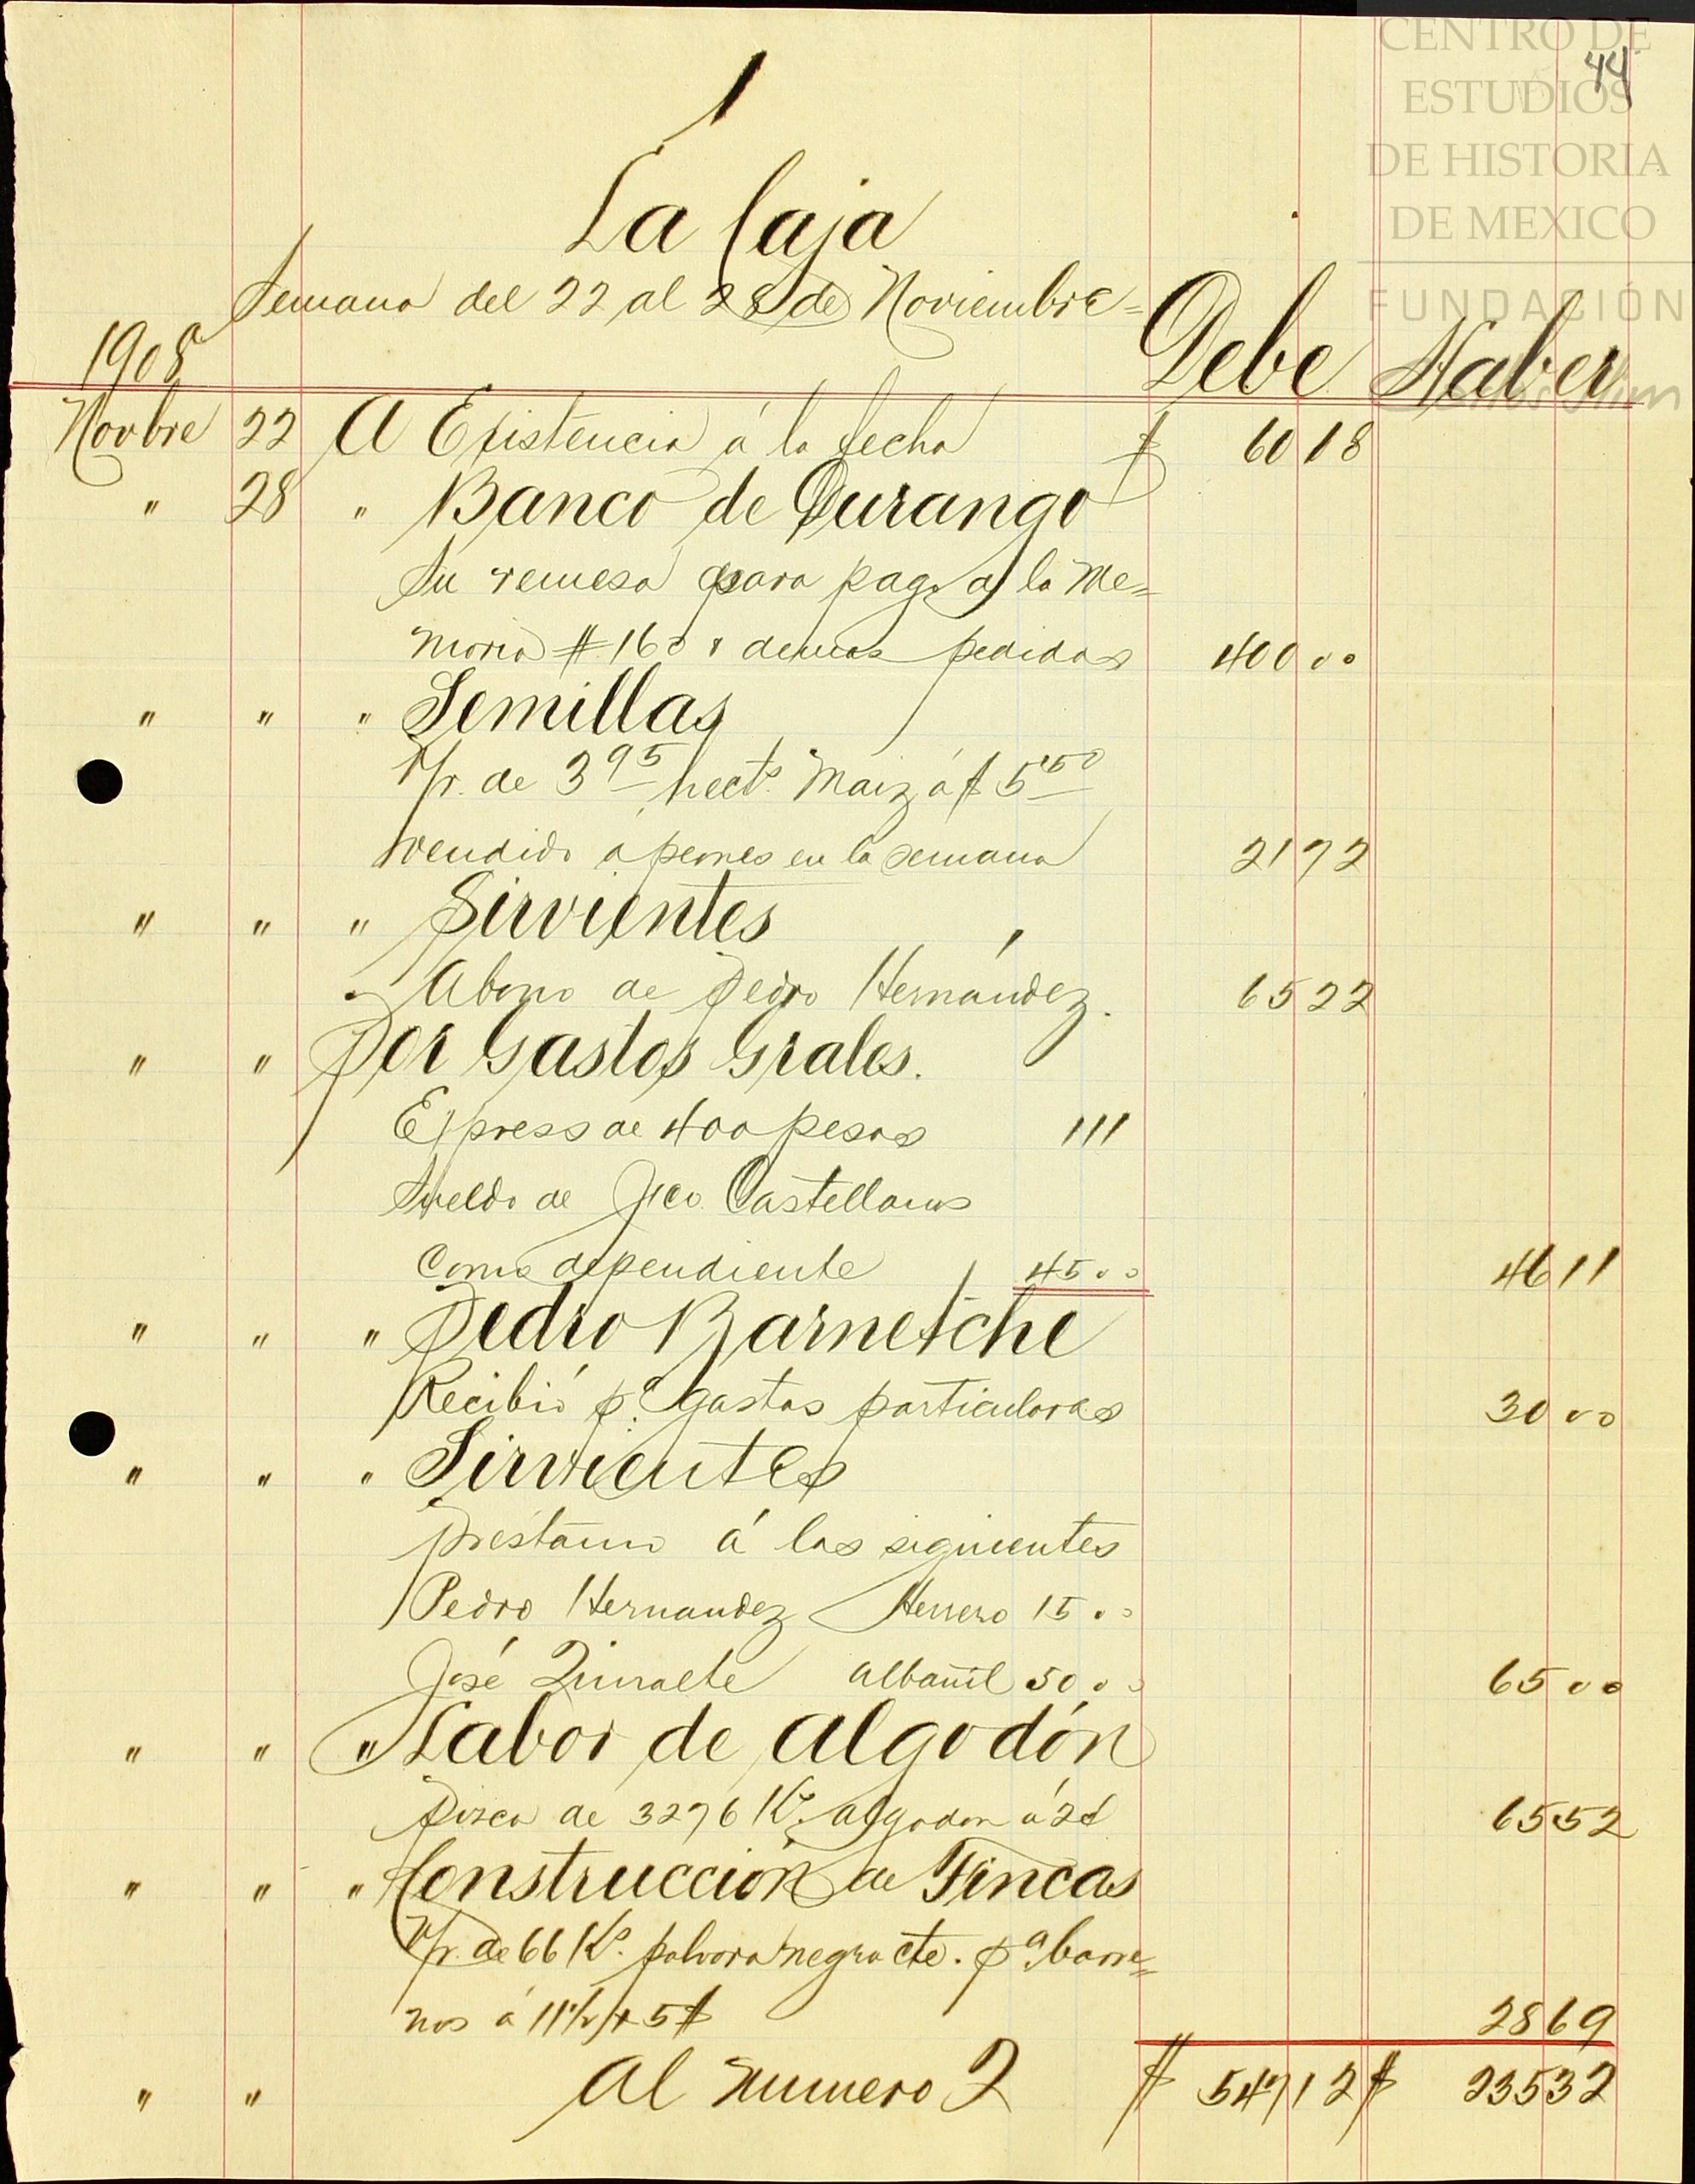 CENTRO DE
ESTUDIOS
DE HISTORIA
DE MEXICO
FUNDACIÓN
44
1
La Caja
Semana del 22 al 28 de Noviembre=
1908 Debe Haber
Novbre 22 A Existencia á la fecha $ 60 18
" 28 " Banco de Durango
Su remesa para pago a la Me=
moria # 160 y demas pedidos 400 00
" " " Semillas
V/r. de 3 95 hects. Maiz á $ 5 50
vendido á peones en la semana 21 72
" " " Sirvientes
Abono de Pedro Hernández. 65 22
" " Por Gastos Grales.
Express de 400 pesos 1 11
Sueldo de Fco. Castellanos
como dependiente 45 00 46 11
" " " Pedro Barnetche
Recibió pa. gastos particulares 30 00
" " " Sirvientes
Préstamo á los siguientes
Pedro Hernandez Herrero 15 00
José albañil 50 00 65 00
" " " Labor de Algodón
Pizca de 3276 Ks. algodon á 2¢ 65 52
" " " Construcción de Fincas
V/r. de 66 Ks. polvora negra cte. pa. barre=
nos á 28 69
" " Al numero 2 $ 547 12 $ 235 32